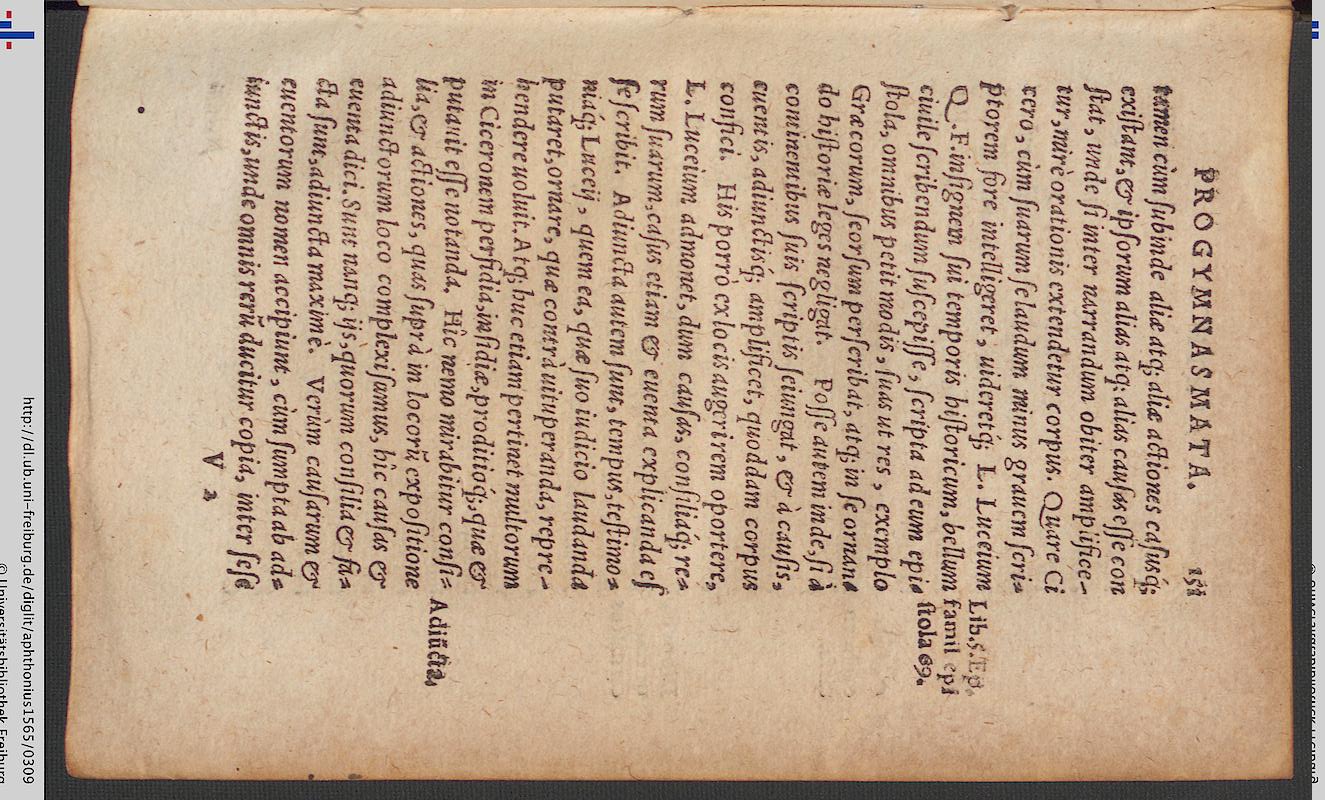 PROGYMNASMATA.
tamen cùm ſubinde aliæ atq; aliæ actiones caſusq;
exiſtant, & ipſorum alius atq; alius cauſas eſſe con
ſtat, unde ſi inter narrandum obiter amplifice-
tur, mirè orationis extendetur corpus. Quare Ci
cero, cùm ſuarum ſe laudum minus grauem ſcri-
ptorem fore intelligeret, uideretq; L. Lucceium
Lib. 5. Ep.
Q. F. inſignem ſui temporis hiſtoricum, bellum
famil epi
ciuile ſcribendum ſuſcepiſſe, ſcripta ad eum epi-
ſtola 69.
ſtola, omnibus petit modis, ſuas ut res, exemplo
Græcorum, ſeorſum perſcribat, atq; in ſe ornan-
do hiſtoriæ leges negligat. Poſſe autem inde, ſi à
continentibus ſuis ſcriptis ſeiungat, & à cauſis,
euentis, adiunctisq; amplificet, quoddam corpus
confici. His porrò ex locis augeri rem oportere,
L. Lucceium admonet, dum cauſas, conſiliaq; re-
rum ſuarum, caſus etiam & euenta explicanda eſ
ſe ſcribit. Adiuncta autem ſunt, tempus, teſtimo-
niaq; Lucceij, quem ea, quæ ſuo iudicio laudanda
putaret, ornare, quæ contrà uituperanda, repre-
hendere uoluit. Atq; huc etiam pertinet multorum
in Ciceronem perfidia, inſidiæ, proditioq; quæ &
putauit eſſe notanda. Hîc nemo mirabitur conſi-
lia, & actiones, quas ſuprà in locorũ expoſitione
Adiũcta.
adiunctorum loco complexi ſumus, hîc cauſas &
euenta dici. Sunt nanq; ijs, quorum conſilia & fa-
cta ſunt, adiuncta maximè. Verùm cauſarum &
euentorum nomen accipiunt, cùm ſumpta ab ad-
iunctis, unde omnis rerũ ducitur copia, inter ſeſe
V 2
http://dl.ub.uni-freiburg.de/diglit/aphthonius1565/0309
© Universitätsbibliothek Freiburg